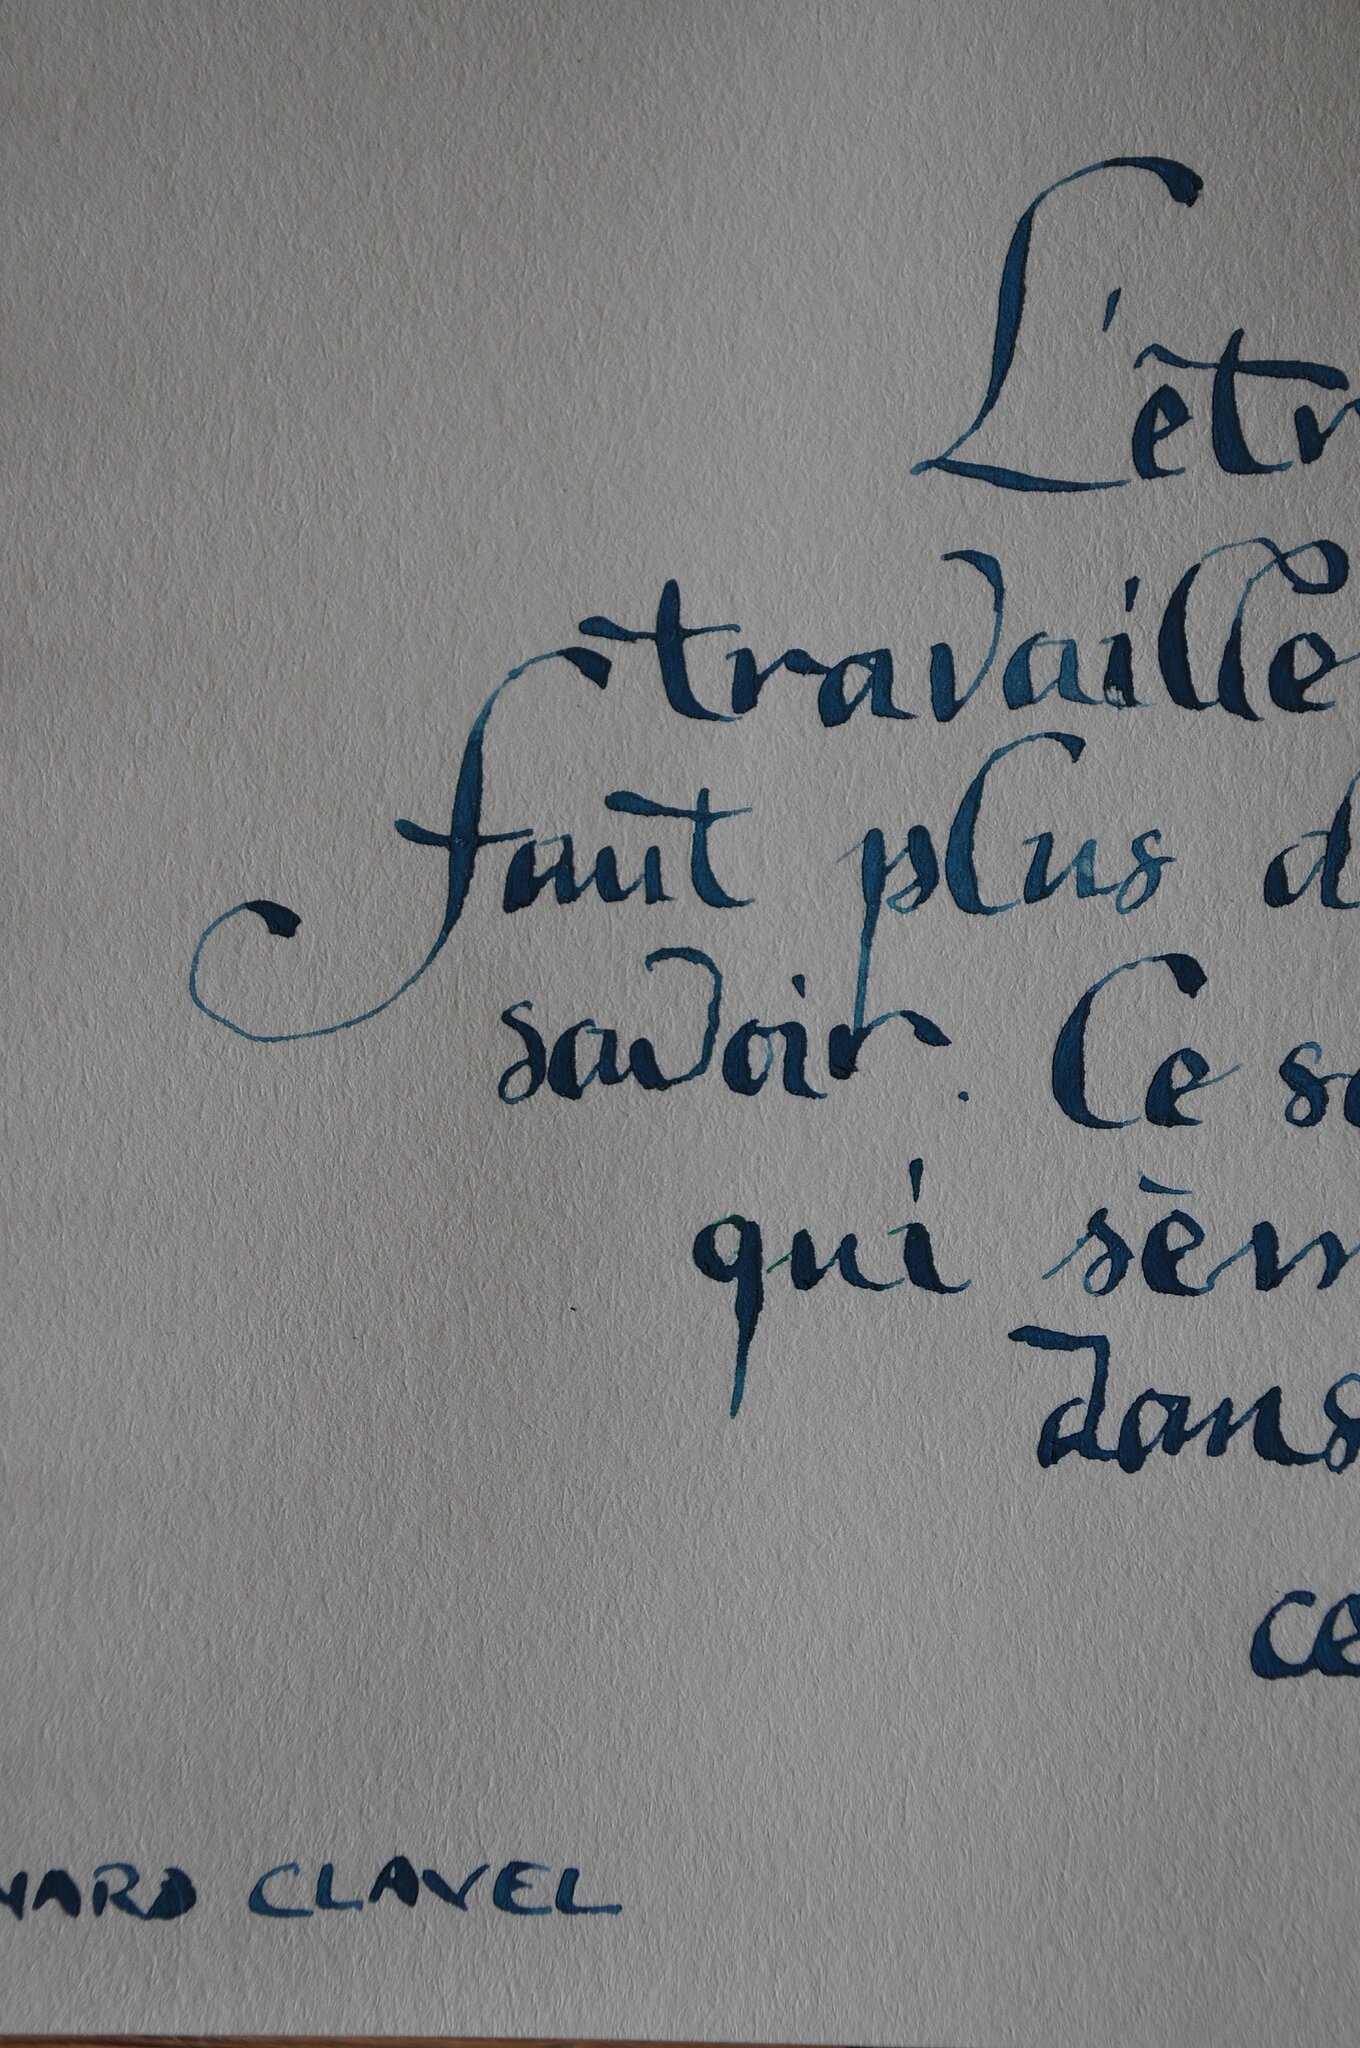 L'êtr
travaille
faut plus d
savoir. Ce so
qui sèm
dans
ce
NARD CLAVEL